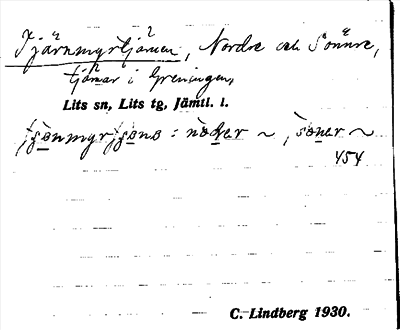 Tjärnmyrtjärnen, Nordre och Sönnre,
tjärnar i Greningen,
Lits sn, Lits tg, Jämtl. l.
: nöḱer ~, söner ~
454
C. Lindberg 1930.